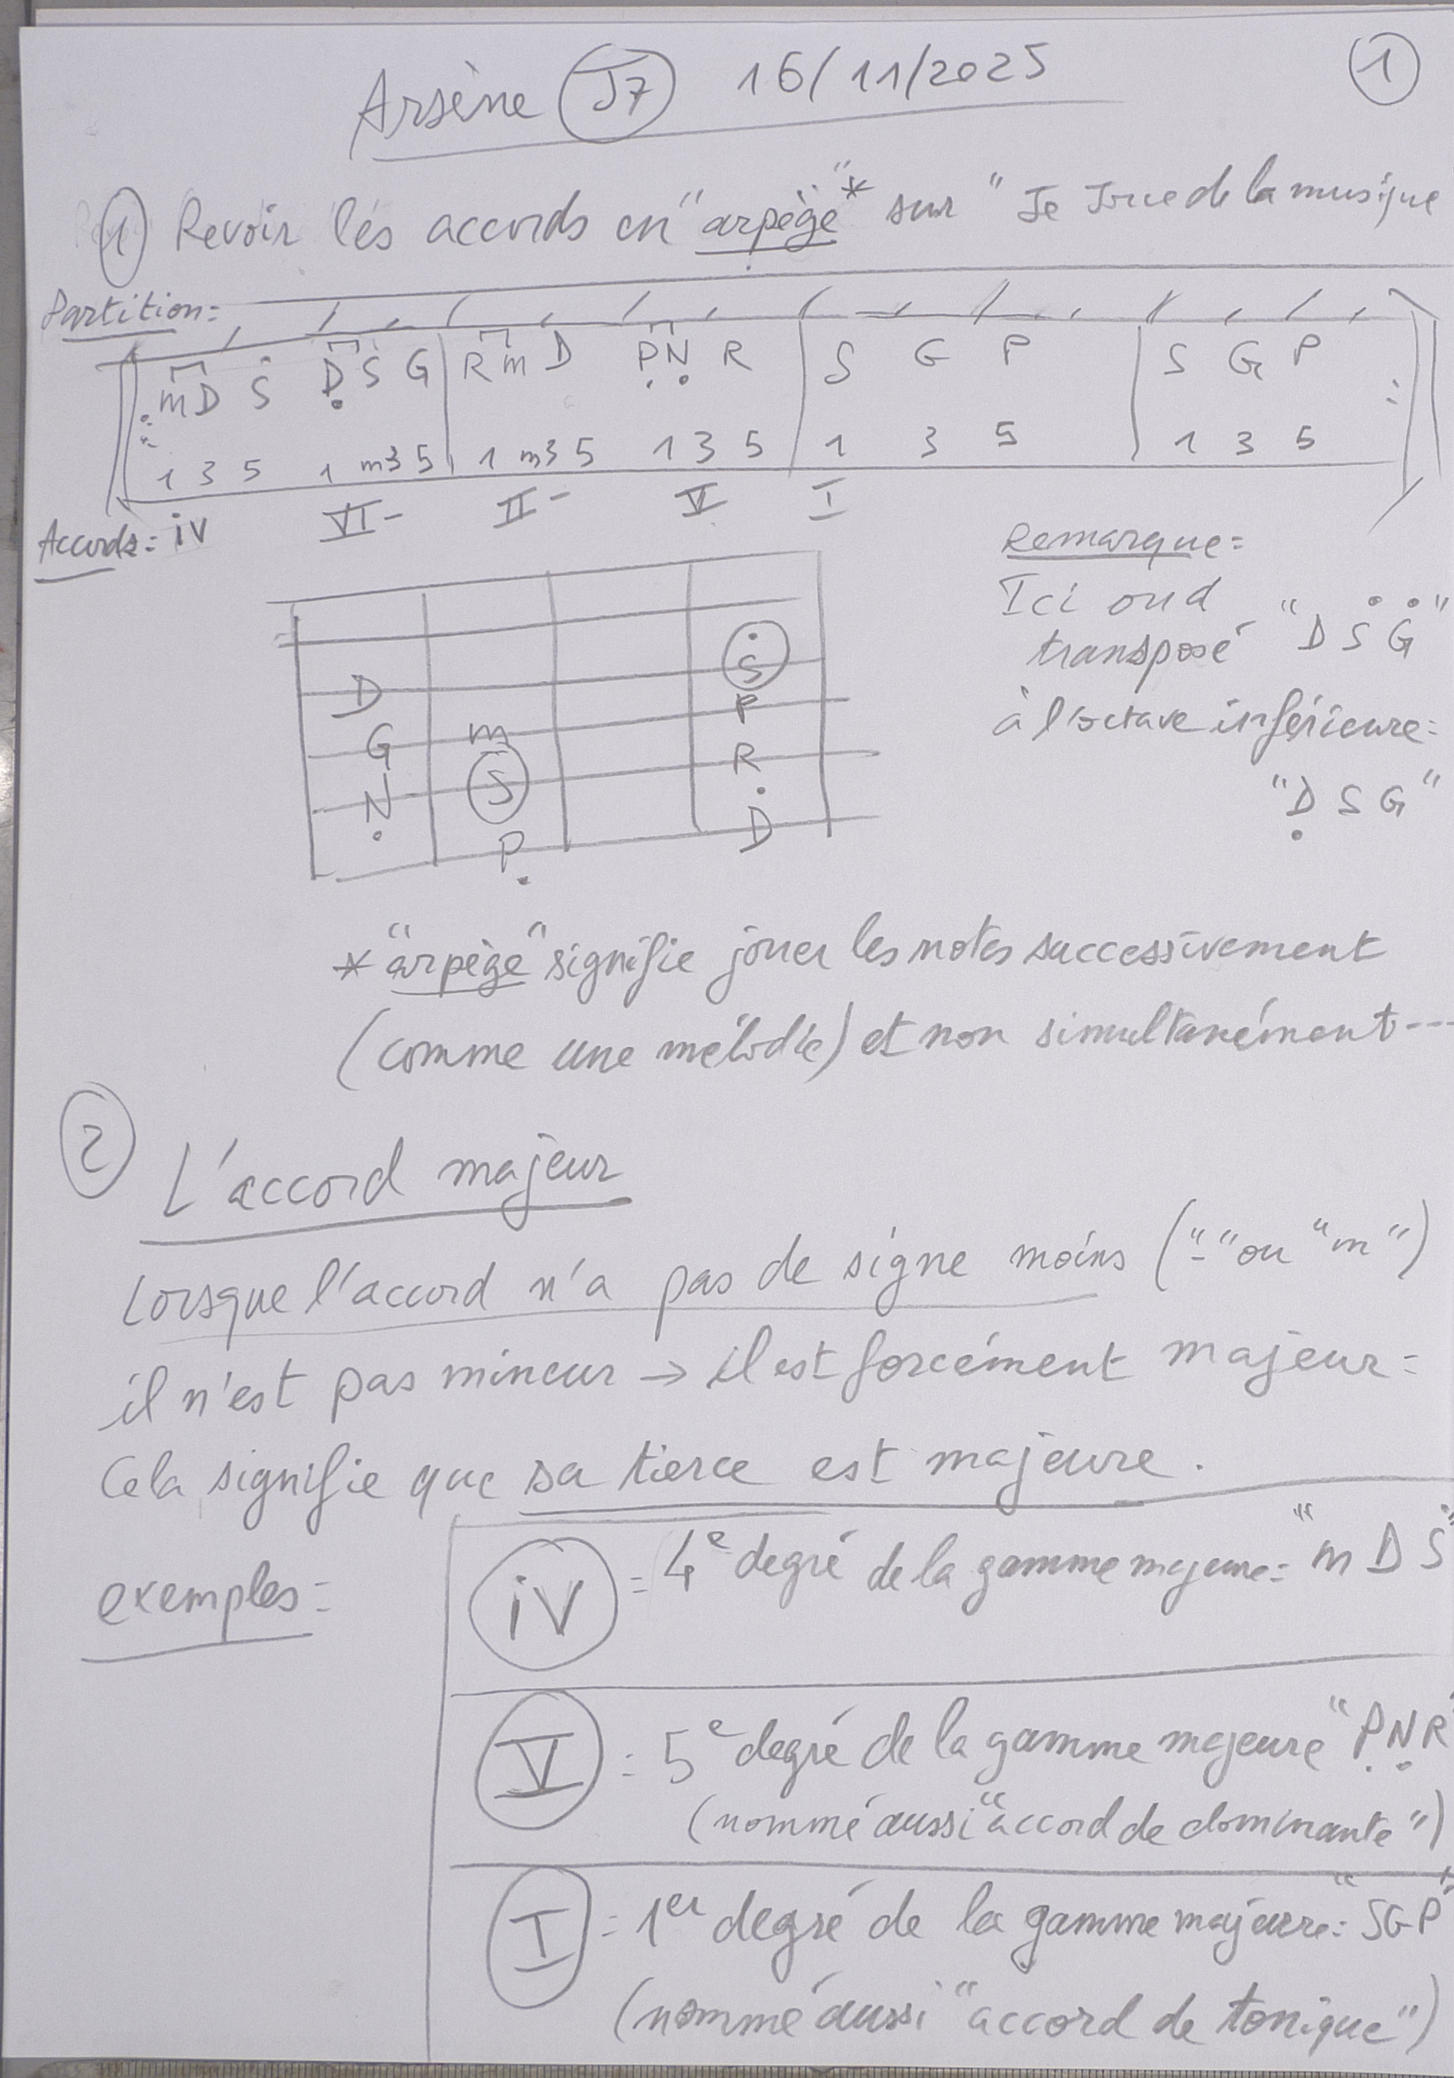 Arsène J7 16/11/2025 1
1 Revoir les accords en "arpège"* sur "Je Joue de la musique
Partition:
m D Ṡ Ḍ S G R m D P̣ Ṇ R S G P S G P
1 3 5 1 m3 5 1 m3 5 1 3 5 1 3 5 1 3 5
Accords: iV VI- II- V I
Remarque:
Ici on a
transposé "D Ṡ Ġ"
à l'octave inférieure:
"Ḍ S G"
D Ṡ
G m P
Ṇ S R
P̣ Ḍ
* "arpège" signifie jouer les notes successivement
(comme une mélodie) et non simultanément...
2 L'accord majeur
Lorsque l'accord n'a pas de signe moins ("-" ou "m")
il n'est pas mineur → il est forcément majeur:
Cela signifie que sa tierce est majeure.
exemples:
iV = 4e degré de la gamme majeure: "m D Ṡ"
V : 5e degré de la gamme majeure "P̣ Ṇ R
(nommé aussi "accord de dominante")
I = 1er degré de la gamme majeure: "S G P"
(nommé aussi "accord de tonique")